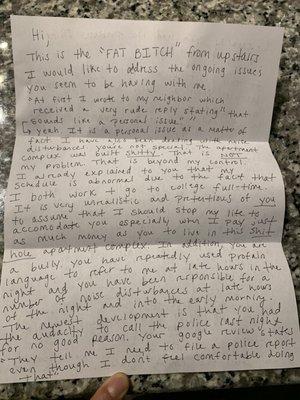 Hi,
This is the "FAT BITCH" from upstairs
I would like to address the ongoing issues
you seem to be having with me.
"At first I wrote to my neighbor which
received a very rude reply stating "that
sounds like a personal issue""
↳ yeah it is a personal issue as a matter of
fact I have also been dealing with noise
disturbances you're not special. The apartment
complex was built shitty. That is NOT
my problem That is beyond my control.
I already explained to you that my
schedule is abnormal due to the fact that
I both work & go to college full-time
It is very unrealistic and pretentious of you
to assume that I should stop my life to
accomodate you especially when I pay just
as much money as you to live in this shit
hole apartment complex. In addition, you are
a bully. you have repeatedly used profain
language to refer to me at late hours in the
night and you have been responsible for a
number of noise disturbances at late hours
of the night and into the early morning.
The newest development is that you had
the audacity to call the police last night
for no good reason. Your google review states
"They tell me I need to file a police report
even though I dont feel comfortable doing
that"